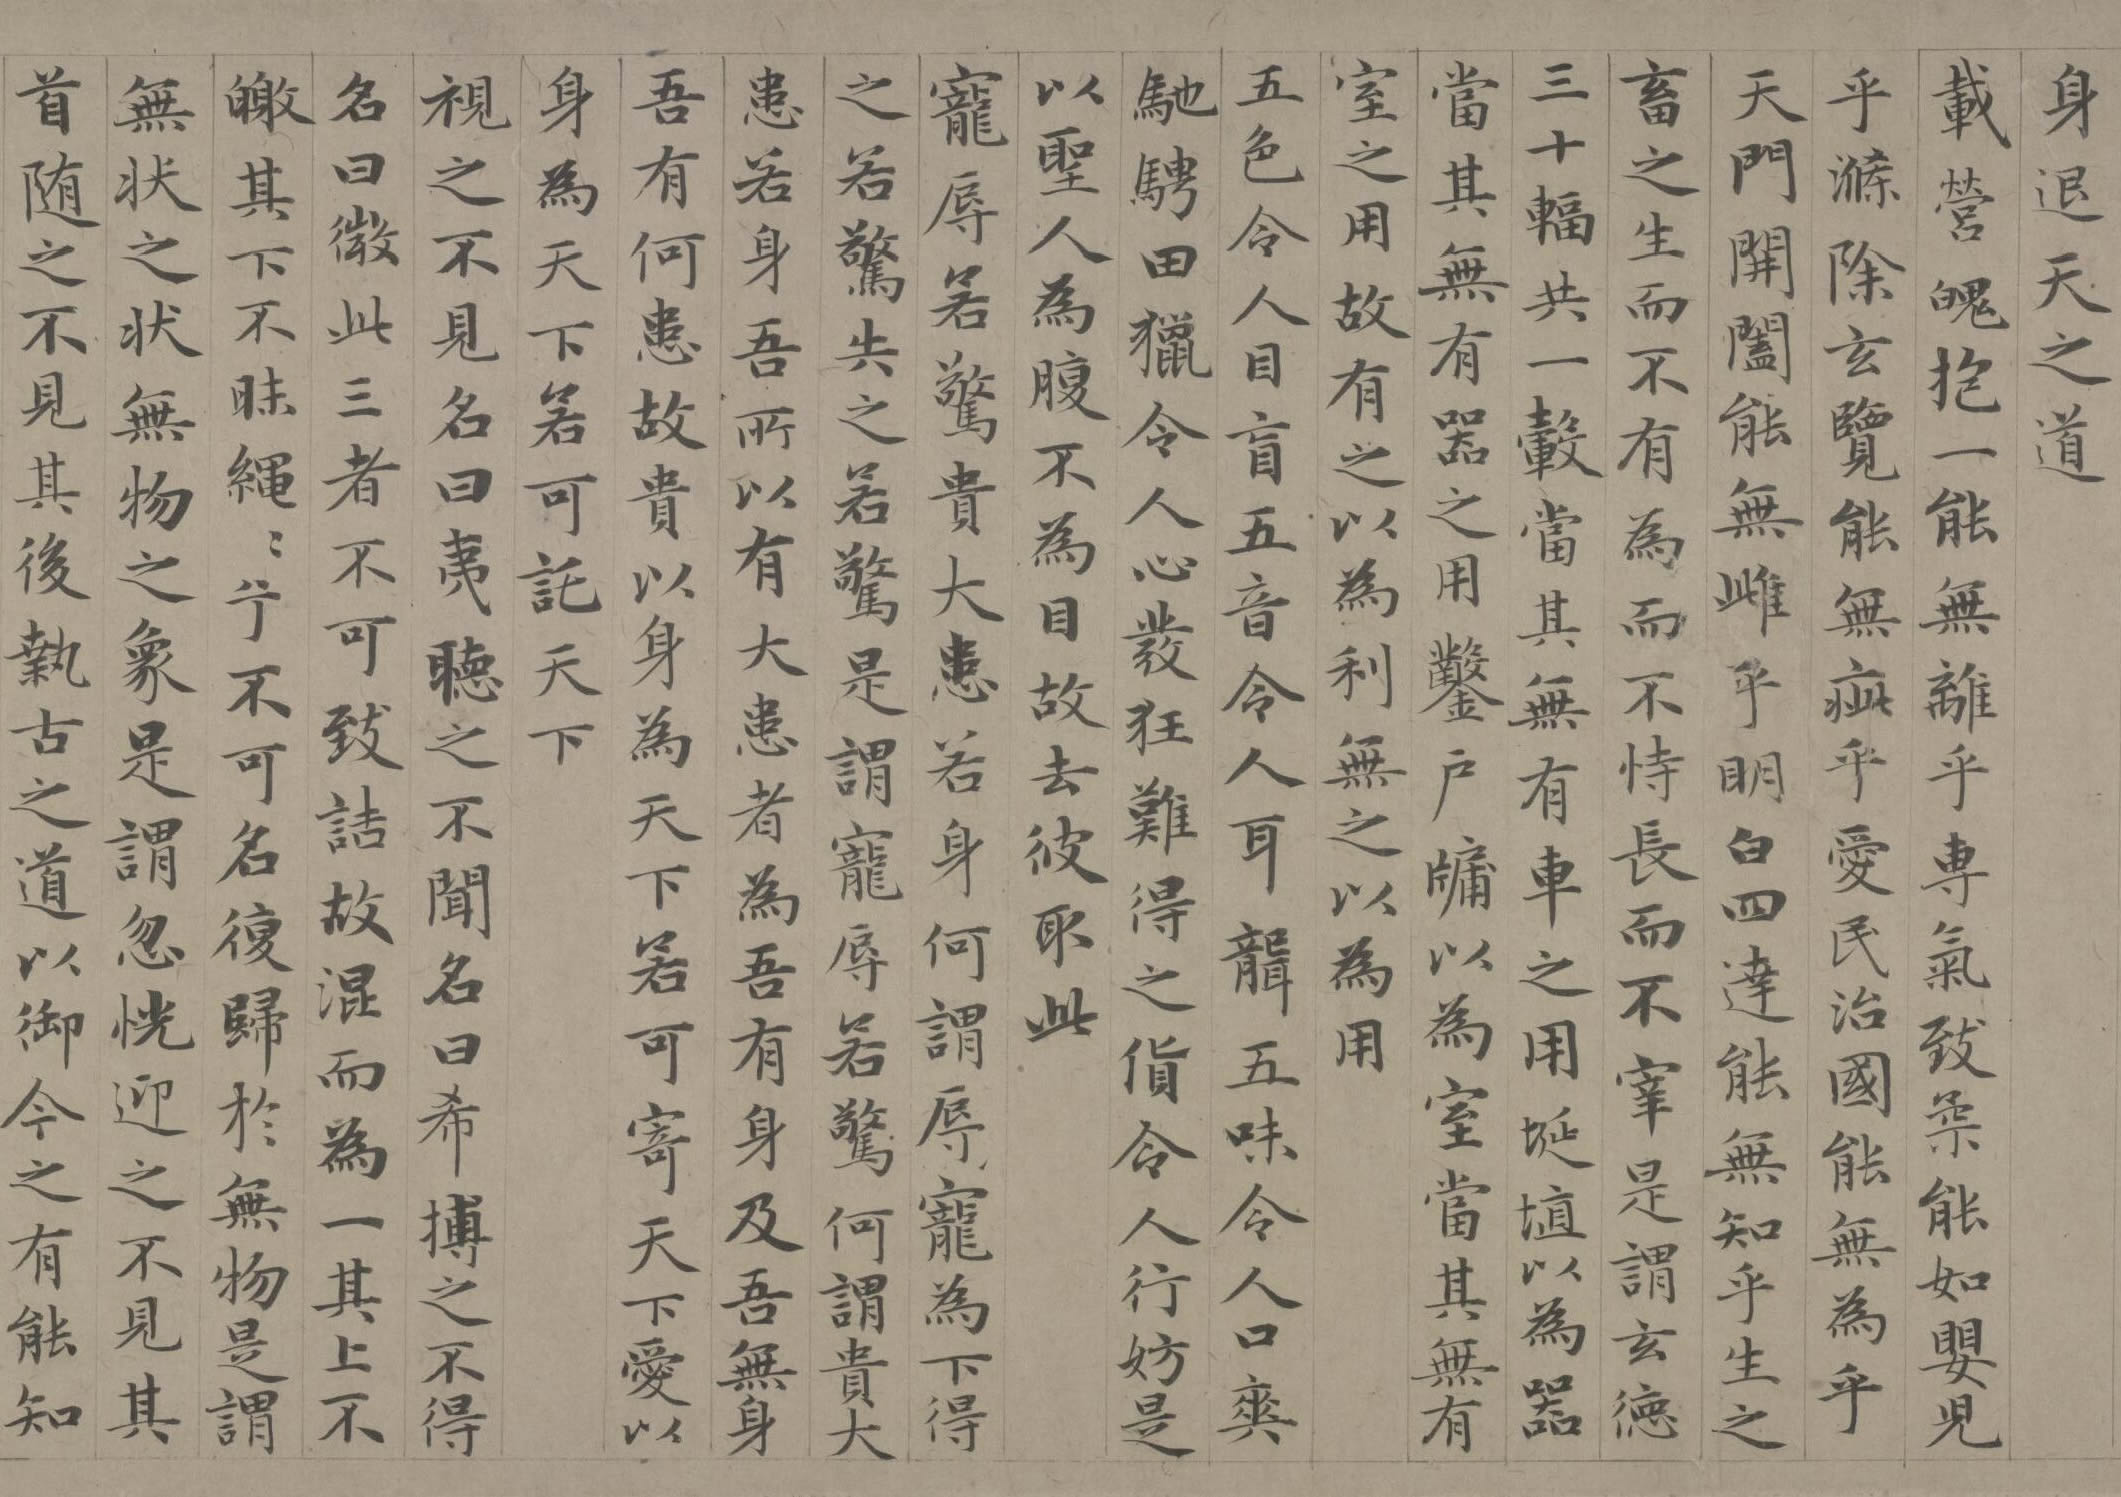 身退天之道
載營魄抱一能無離乎專氣致柔能如嬰兒
乎滌除玄覽能無疵乎愛民治國能無為乎
天門開闔能無雌乎明白四達能無知乎生之
畜之生而不有為而不恃長而不宰是謂玄德
三十輻共一轂當其無有車之用埏埴以為器
當其無有器之用鑿戶牖以為室當其無有
室之用故有之以為利無之以為用
五色令人目盲五音令人耳聾五味令人口爽
馳騁田獵令人心發狂難得之貨令人行妨是
以聖人為腹不為目故去彼取此
寵辱若驚貴大患若身何謂辱寵為下得
之若驚失之若驚是謂寵辱若驚何謂貴大
患若身吾所以有大患者為吾有身及吾無身
吾有何患故貴以身為天下若可寄天下愛以
身為天下若可託天下
視之不見名曰夷聽之不聞名曰希搏之不得
名曰微此三者不可致詰故混而為一其上不
皦其下不昧繩〻兮不可名復歸於無物是謂
無狀之狀無物之象是謂忽恍迎之不見其
首隨之不見其後執古之道以御今之有能知